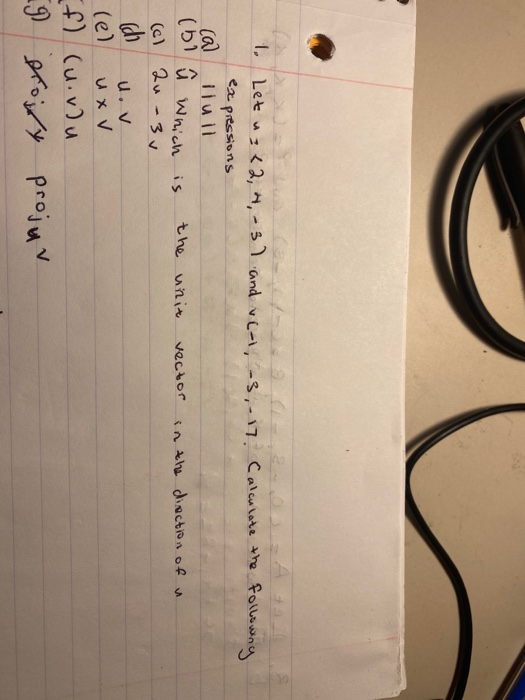 1. Let u = <2, 4, -3> and v<-1, -3, -1>. Calculate the following
expressions
(a) ||u||
(b) û which is the unit vector in the direction of u
(c) 2u - 3v
(d) u.v
(e) u x v
(f) (u.v)u
g) proju v